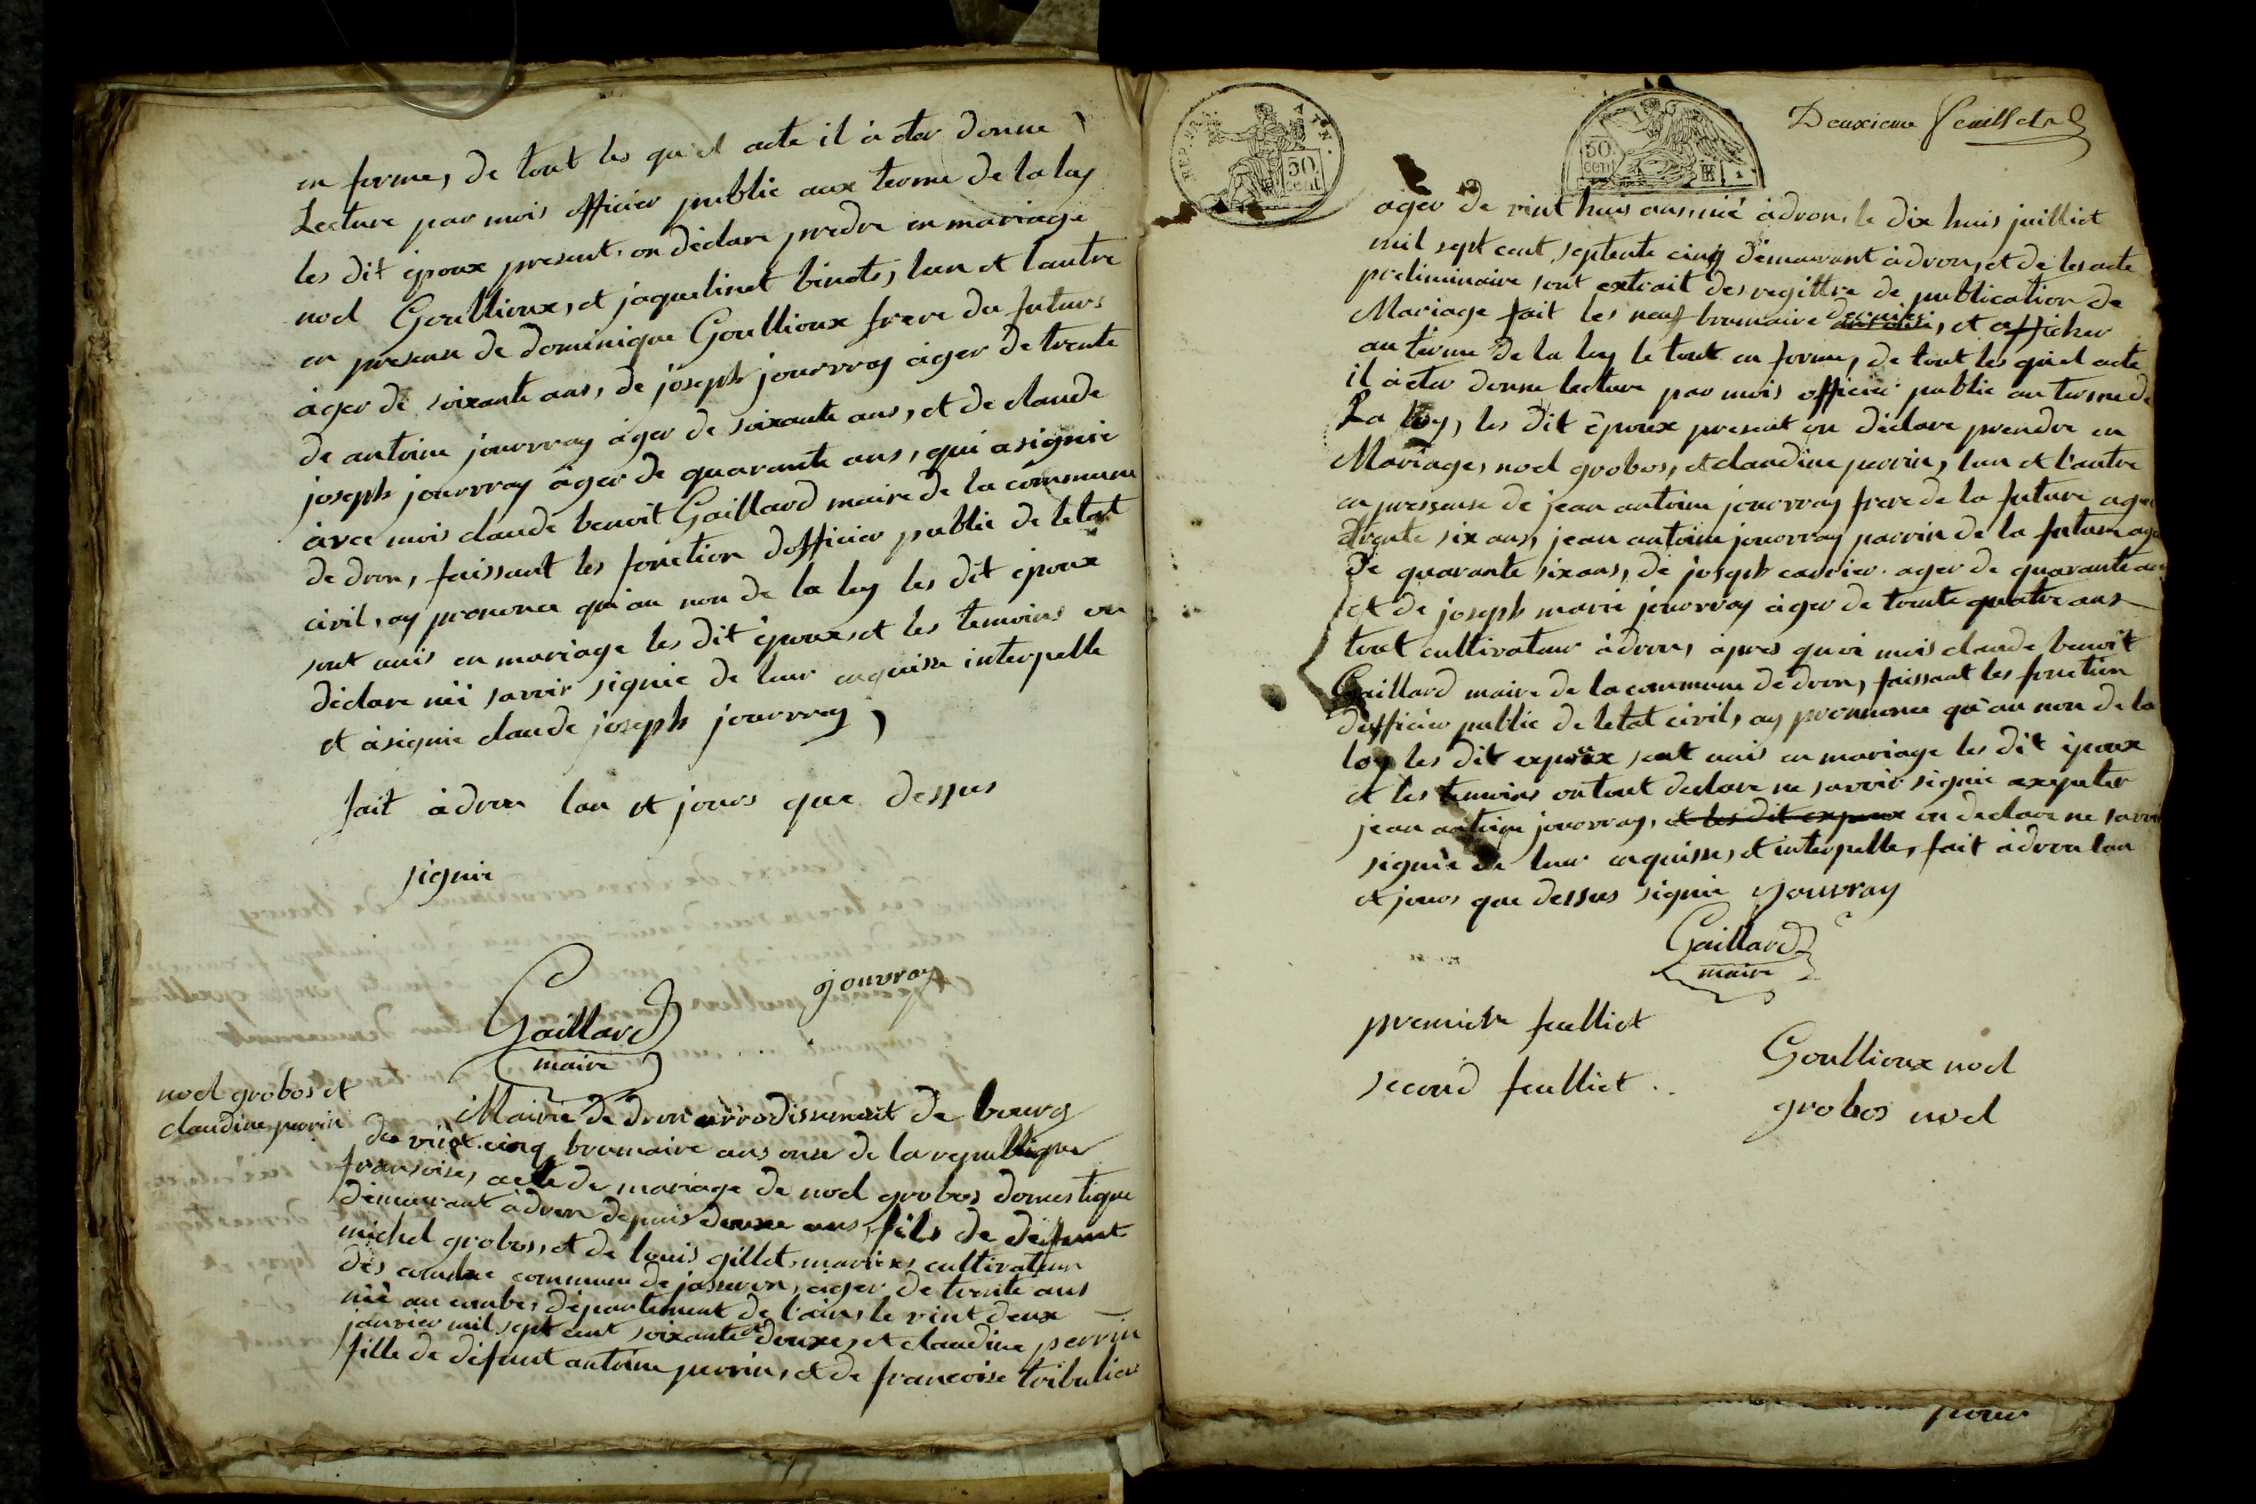 en forme, de tout les quel acte il à eter donne
Lecture par mois officier public aux terme de la loy
les dit époux present, on déclare predre en mariage
noel Goullioux, et jaquelinet binote, lun et lautre
en presense de dominique Goullioux frere du futurs
àger de soixante ans, de joseph jouvray àger de trente
de antoine jouvray àger de soixante ans, et de claude
joseph jouvray àger de quarante ans, qui a signie
àvec mois claude benoit Gaillard maire de la commune
de dron, faissant les fonction dofficier public de letat
civil, ay prononcer qu'au non de la loy les dit époux
sont unis en mariage les dit époux et les temoins on
déclare nëi savoir signie de leur enquisse interpelle
et àsignie claude joseph jouvray,
fait à dron lan et jours que dessus
signie
jouvray
Gaillard
maire
noel grobos et
claudine perrin
Mairie de dron arrodissement de bourg
du vint cinq brumaire ans onse de la republique
fransoise, acte de mariage de noel grobos domestique
démeurant à dron depuis douse ans, fils de défunt
michel grobos, et de louis gillet, mariers cultivateur
des combe commune de jasseron, àger de trente ans
nié au combe, département de l'ain, le vint deux
janvier mil sept cent soixante et douxe, et claudine perrin
fille de défunt antoine perrin, et de francoise tribulier
REP. FRA
ATN.
50
cent
50
cent
Deuxieme feuillet
ager de vint huis ans, nié à dron, le dix huis juilliet
mil sept cent septente cinq démeurant à dron, et de les acte
preliminaire sont extrait des registre de publication de
Mariage fait les neuf brumaire dernier, et afficher
au terme de la loy le tout en forme, de tout les quel acte
il à eter donne lecture par mois officier public au terme de
La loy, les dit époux present on déclare prendre en
Mariage, noel grobos, et claudine perrin, lun et l'autre
en pressanse de jean antoine jouvray frere de la future ager
de trente six ans, jean antoine jouvray parrin de la future ager
de quarante six ans, de joseph carrier ager de quarante ans
et de joseph marie jouvray àger de trente quatre ans
tout cultivateur à dron, àpres quoi mois claude benoit
Gaillard maire de la commune de dron, faissant les fonction
dofficier public de letat civil, ay prononcer qu'au non de la
loy les dit expoux sont unis en mariage les dit époux
et les temoins on tout declare ne savoir signie axepter
jean antoine jouvray, et les dit expoux on declare ne savoir
signie de leur enquisse, et interpelle, fait à dron lan
et jours que dessus signie jouvray
Gaillard
maire
premier feulliet
second feulliet.
Goullioux noel
grobos noel